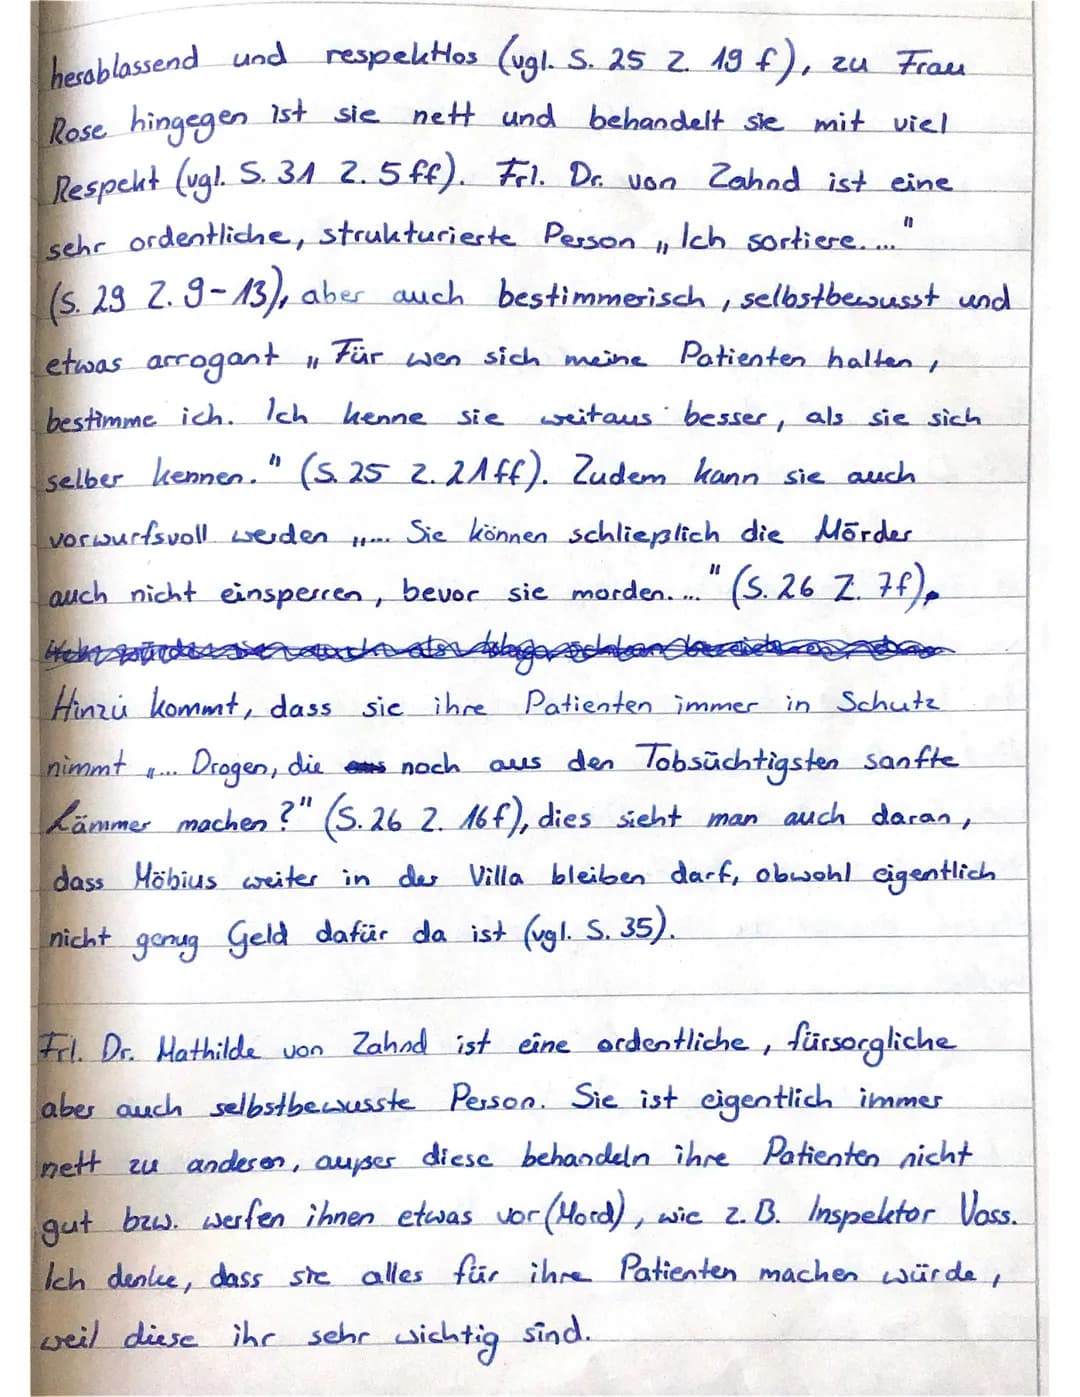 herablassend und respektlos (vgl. S. 25 Z. 19 f), zu Frau
Rose hingegen ist sie nett und behandelt sie mit viel
Respekt (vgl. S. 31 Z. 5 ff). Frl. Dr. von Zahnd ist eine
sehr ordentliche, strukturierte Person „Ich sortiere. ..."
(S. 29 Z. 9-13), aber auch bestimmerisch, selbstbewusst und
etwas arrogant „Für wen sich meine Patienten halten,
bestimme ich. Ich kenne sie weitaus besser, als sie sich
selber kennen." (S. 25 Z. 21 ff). Zudem kann sie auch
vorwurfsvoll werden „... Sie können schließlich die Mörder
auch nicht einsperren, bevor sie morden. ..." (S. 26 Z. 7f).
Hinzu kommt, dass sie ihre Patienten immer in Schutz
nimmt „... Drogen, die noch aus den Tobsüchtigsten sanfte
Lämmer machen?" (S. 26 Z. 16f), dies sieht man auch daran,
dass Möbius weiter in der Villa bleiben darf, obwohl eigentlich
nicht genug Geld dafür da ist (vgl. S. 35).
Frl. Dr. Mathilde von Zahnd ist eine ordentliche, fürsorgliche
aber auch selbstbewusste Person. Sie ist eigentlich immer
nett zu anderen, außer diese behandeln ihre Patienten nicht
gut bzw. werfen ihnen etwas vor (Mord), wie z.B. Inspektor Voss.
Ich denke, dass sie alles für ihre Patienten machen würde,
weil diese ihr sehr wichtig sind.